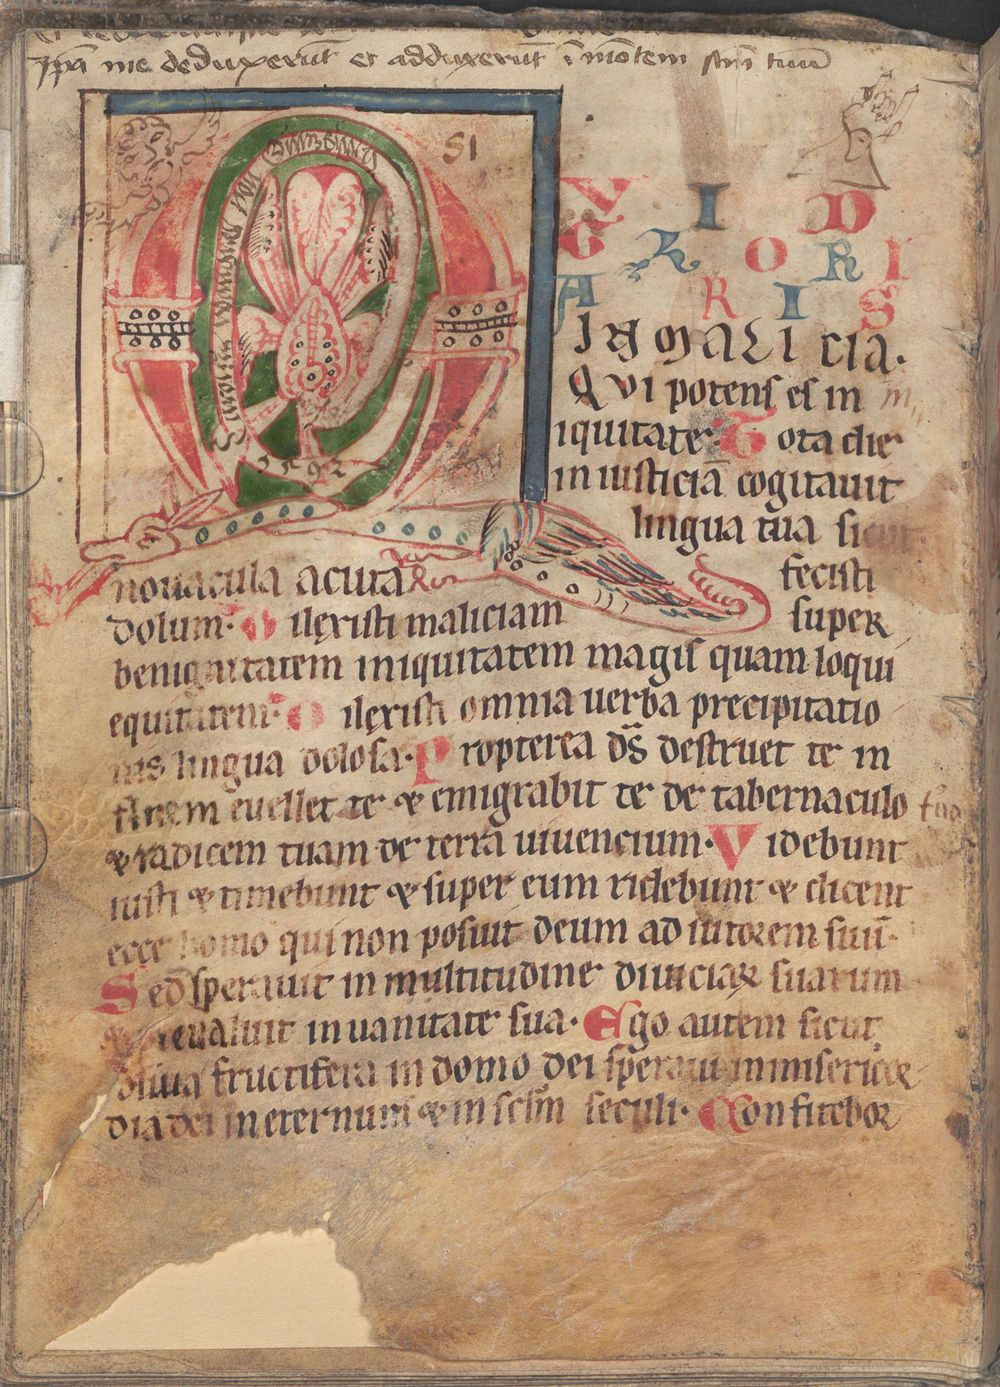 Ipa me deduxerūt et adduxerūt ī mōtem scm̄ tuū
51
Q VID
GLORI
ARIS
IN MALICIA·
QVI potens es in
iniquitate· Tota die
iniusticiā cogitauit
lingua tua sicut
nouacula acuta fecisti
dolum· Dilexisti maliciam super
benignitatem iniquitatem magis quam loqui
equitatem· Dilexisti omnia uerba precipitatio
nis lingua dolosa· Propterea ds̄ destruet te in
finem euellet te & emigrabit te de tabernaculo tuo
& radicem tuam de terra uiuencium· Videbunt
iusti & timebunt & super eum ridebunt & dicent
ecce homo qui non posuit deum adiutorem suū·
Sed sperauit in multitudine diuiciaꝝ suarum
& preualuit in uanitate sua· Ego autem sicut
oliua fructifera in domo dei speraui in misericor
dia dei in eternum & in sclm̄ seculi· Confitebor
1592